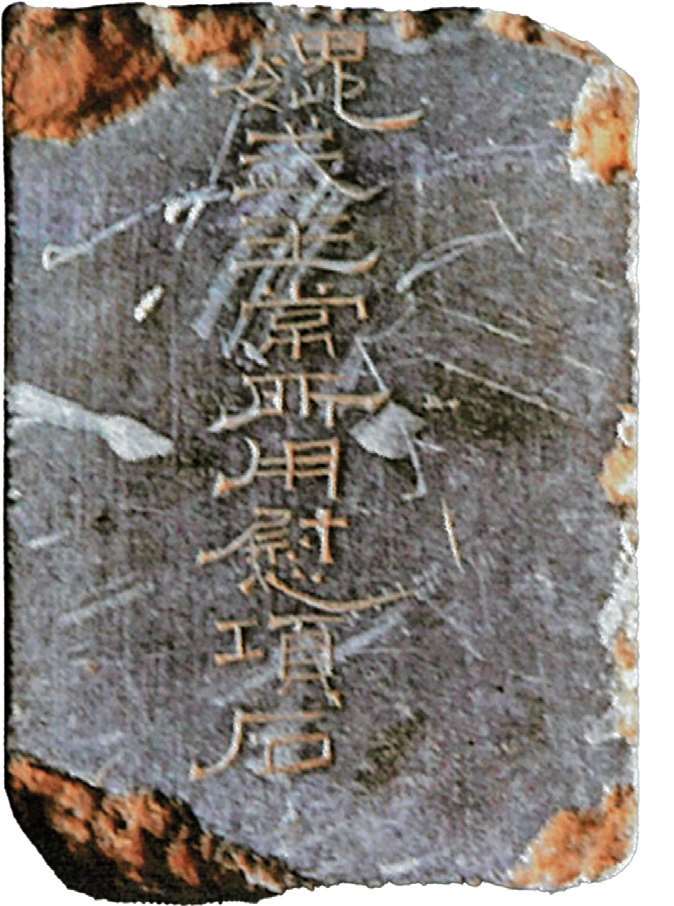 魏武王常所用慰項石